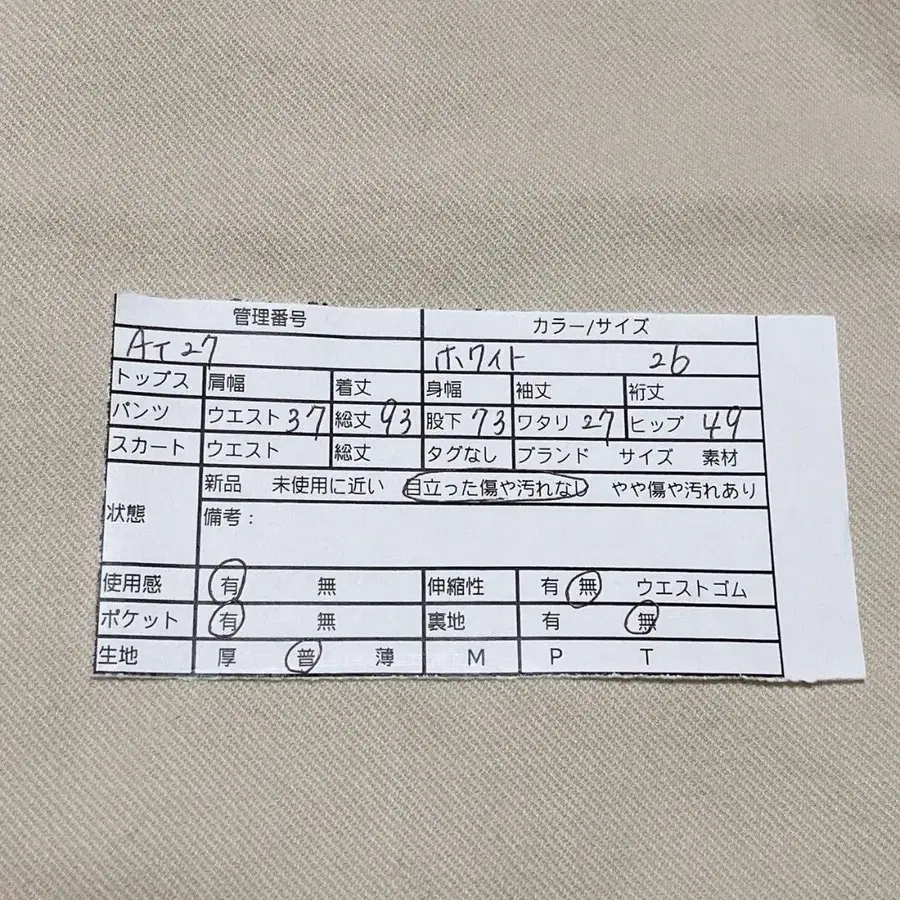 管理番号 カラー/サイズ
AT27 ホワイト 26
トップス 肩幅 着丈 身幅 袖丈 裄丈
パンツ ウエスト 37 総丈 93 股下 73 ワタリ 27 ヒップ 49
スカート ウエスト 総丈 タグなし ブランド サイズ 素材
状態 新品 未使用に近い 目立った傷や汚れなし やや傷や汚れあり
備考：
使用感 有 無 伸縮性 有 無 ウエストゴム
ポケット 有 無 裏地 有 無
生地 厚 普 薄 M P T